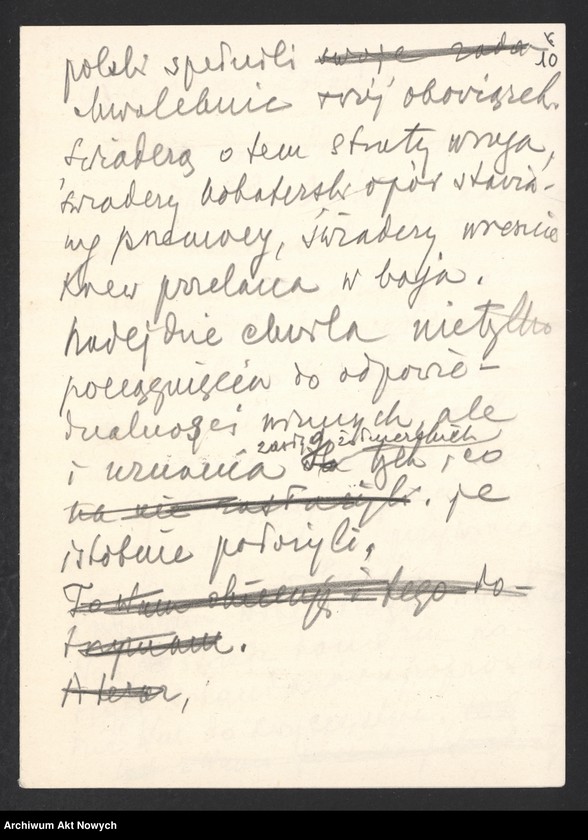 10
polski spełnili swoje zada
chwalebnie swój obowiązek.
Świadczą o tem straty wroga,
świadczy bohaterski opór stawia-
ny przemocy, świadczy wreszcie
krew przelana w boju.
Nadejdzie chwila nietylko
pociągnięcia do odpowie-
dzialności winnych, ale
zasług żołnierskich
i uznania dla tych, co
na nie zasłużyli. je
istotnie położyli.
To Wam obiecuję i tego do-
trzymam.
A teraz,
Archiwum Akt Nowych